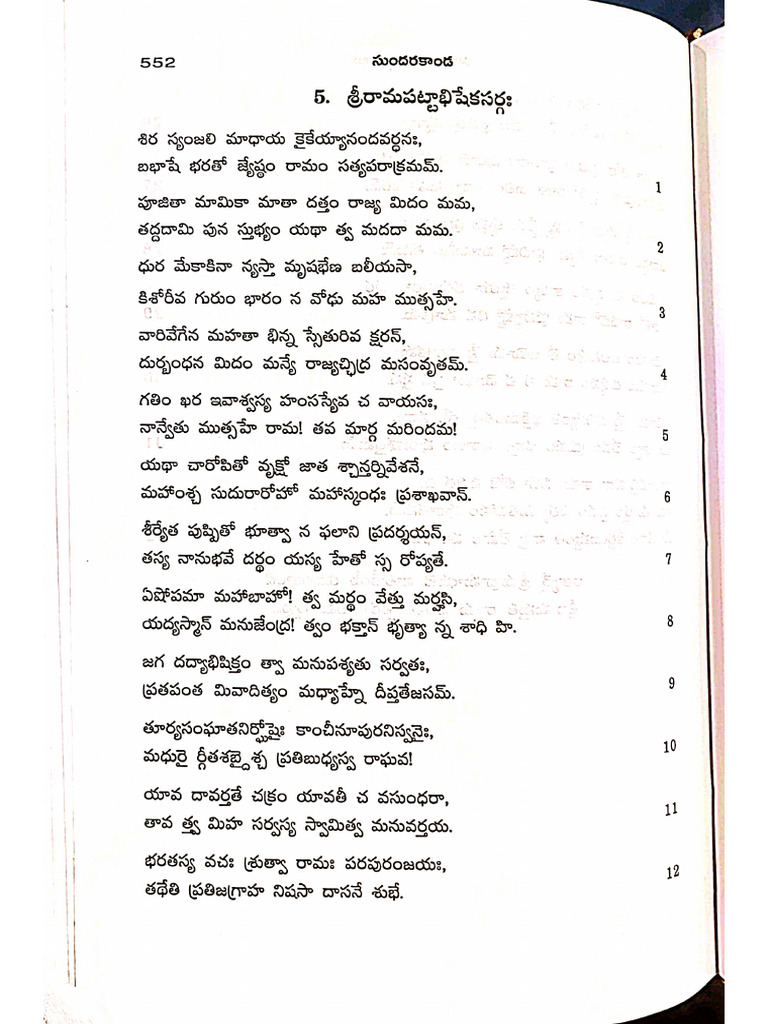 552
సుందరకాండ
5. శ్రీరామపట్టాభిషేకసర్గః
శిర స్యంజలి మాధాయ కైకేయ్యానందవర్ధనః,
బభాషే భరతో జ్యేష్ఠం రామం సత్యపరాక్రమమ్.
1
పూజితా మామికా మాతా దత్తం రాజ్య మిదం మమ,
తద్దదామి పున స్తుభ్యం యథా త్వ మదదా మమ.
2
ధుర మేకాకినా న్యస్తా మృషభేణ బలీయసా,
కిశోరీవ గురుం భారం న వోఢు మహ ముత్సహే.
3
వారివేగేన మహతా భిన్న స్సేతురివ క్షరన్,
దుర్బంధన మిదం మన్యే రాజ్యచ్ఛిద్ర మసంవృతమ్.
4
గతిం ఖర ఇవాశ్వస్య హంసస్యేవ చ వాయసః,
నాన్వేతు ముత్సహే రామ! తవ మార్గ మరిందమ!
5
యథా చారోపితో వృక్షో జాత శ్చాంతర్నివేశనే,
మహాంశ్చ సుదురారోహో మహాస్కంధః ప్రశాఖవాన్.
6
శీర్యేత పుష్పితో భూత్వా న ఫలాని ప్రదర్శయన్,
తస్య నానుభవే దర్థం యస్య హేతో స్స రోప్యతే.
7
ఏషోపమా మహాబాహో! త్వ మర్థం వేత్తు మర్హసి,
యద్యస్మాన్ మనుజేంద్ర! త్వం భక్తాన్ భృత్యా న్న శాధి హి.
8
జగ దద్యాభిషిక్తం త్వా మనుపశ్యతు సర్వతః,
ప్రతపంత మివాదిత్యం మధ్యాహ్నే దీప్తతేజసమ్.
9
తూర్యసంఘాతనిర్ఘోషైః కాంచీనూపురనిస్వనైః,
మధురై ర్గీతశబ్దైశ్చ ప్రతిబుధ్యస్వ రాఘవ!
10
యావ దావర్తతే చక్రం యావతీ చ వసుంధరా,
తావ త్త్వ మిహ సర్వస్య స్వామిత్వ మనువర్తయ.
11
భరతస్య వచః శ్రుత్వా రామః పరపురంజయః,
తథేతి ప్రతిజగ్రాహ నిషసా దాసనే శుభే.
12